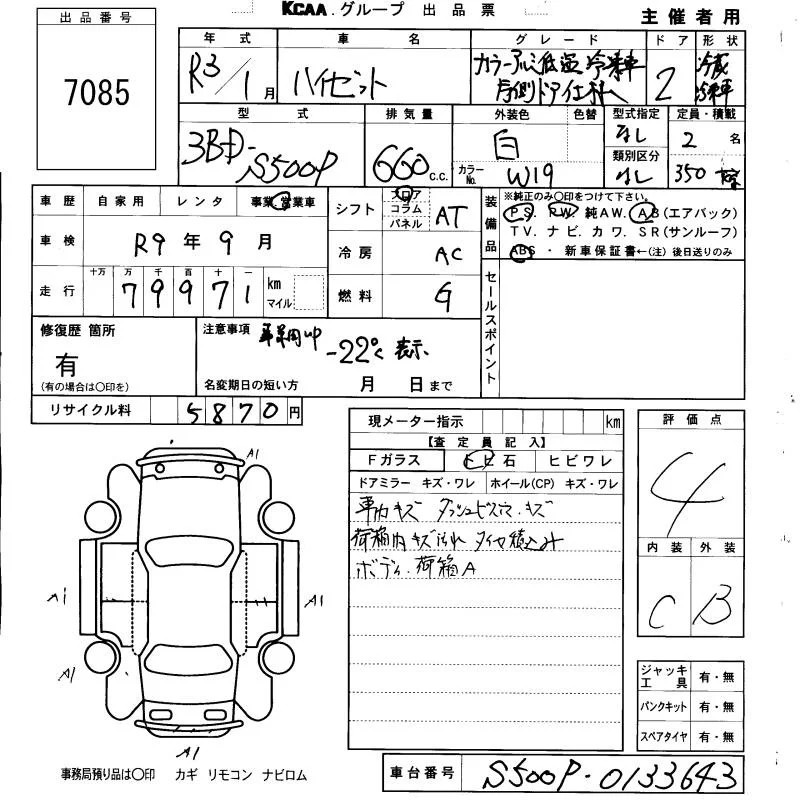 KCAA.グループ 出品票
主催者用
出品番号
7085
年式 車名 グレード ドア 形状
R3/1月 ハイゼット カラーアルミ低温冷凍車 2 冷蔵
左側ドア仕様 冷凍車
型式 排気量 外装色 色替 型式指定 定員・積載
3BD-S500P 660 c.c. 白 なし 2名
カラーNo. W19 類別区分 なし 350
車歴 自家用 レンタ 事業 営業車
シフト フロア コラム パネル AT
装備品 ※純正のみ○印をつけて下さい。
PS. PW 純AW. AB(エアバック)
TV. ナビ. カワ. SR(サンルーフ)
ABS ・ 新車保証書←(注) 後日送りのみ
車検 R9年9月
冷房 AC
走行 十万 万 千 百 十 一
79971 km マイル
燃料 G
セールスポイント
修復歴 箇所
有
(有の場合は○印を)
注意事項 事業用UP
-22℃ 表示
名変期日の短い方 月 日まで
リサイクル料 5870円
現メーター指示 km
【査定員記入】
Fガラス 飛石 ヒビワレ
ドアミラー キズ・ワレ ホイール(CP) キズ・ワレ
車内キズ ダッシュビス穴・キズ
荷箱内キズ汚れ タイヤ積込み
ボディ・荷箱A
評価点
4
内装 外装
C B
A1
A1
A1
A1
A1
ジャッキ工具 有・無
パンクキット 有・無
スペアタイヤ 有・無
事務局預り品は○印 カギ リモコン ナビロム
車台番号 S500P-0133643